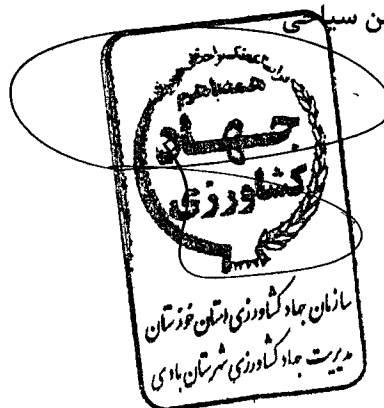 ن سیاحی
همه با هم
جهاد
کشاورزی
سازمان جهاد کشاورزی استان خوزستان
مدیریت جهاد کشاورزی شهرستان باوی